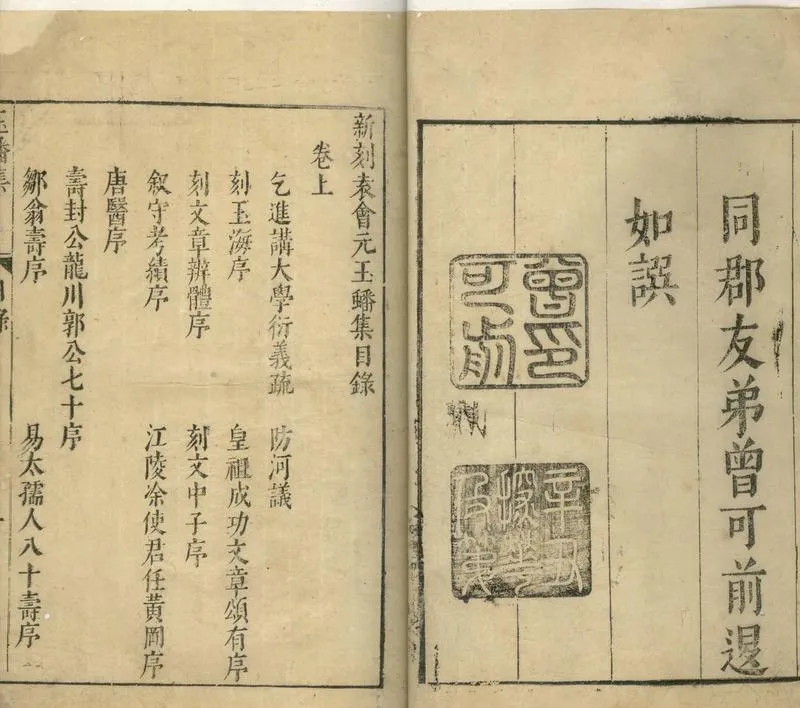 同郡友弟曾可前退
如譔
曾印
可前
辛丑
探花
及第
新刻袁會元玉蟠集目錄
卷上
乞進講大學衍義疏 防河議
刻玉海序 皇祖成功文章頌有序
刻文章辨體序 刻文中子序
敘守考績序 江陵凃使君任黃岡序
唐醫序
壽封公龍川郭公七十序
鄒翁壽序 易太孺人八十壽序
玉蟠集 目錄 一